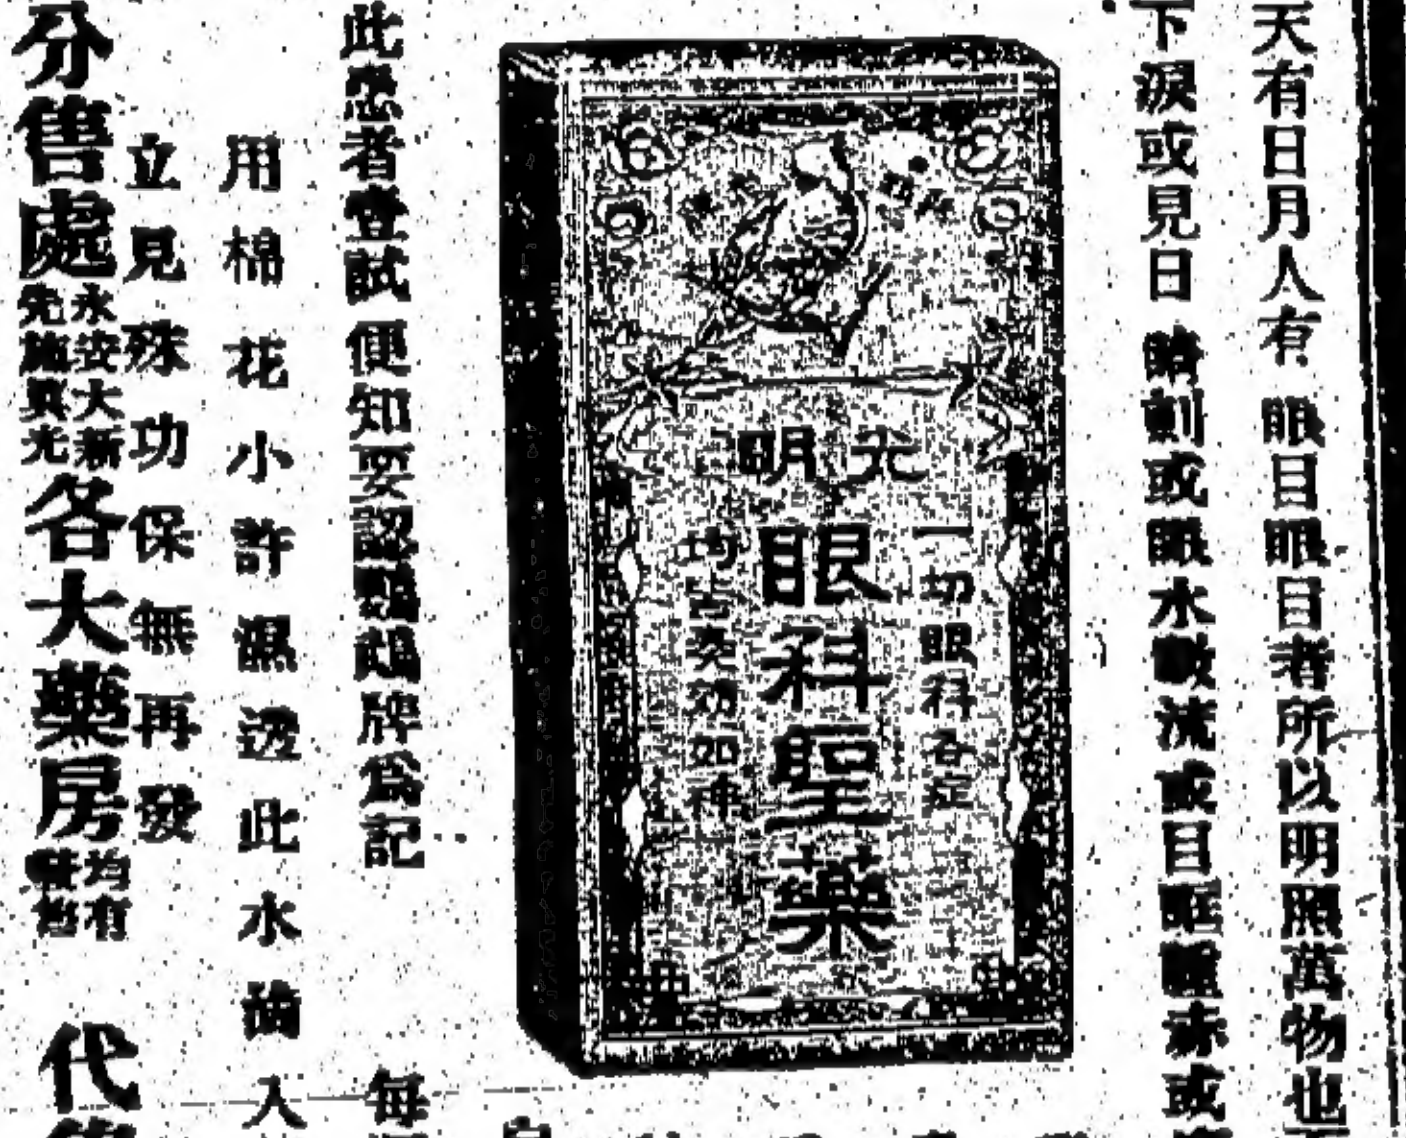 天有日月人有眼目眼目者所以明照萬物也
下淚或見日 刺或眼水 流或目眶 赤或
光明
一切眼科各症
眼科聖藥
均占奏効如神
此恙者豈試便知要認鵝牌為記
每
用棉花小許濕透此水滴入
立見殊功保無再發
分售處
永安大新
先施真光
各大藥房
均有
代